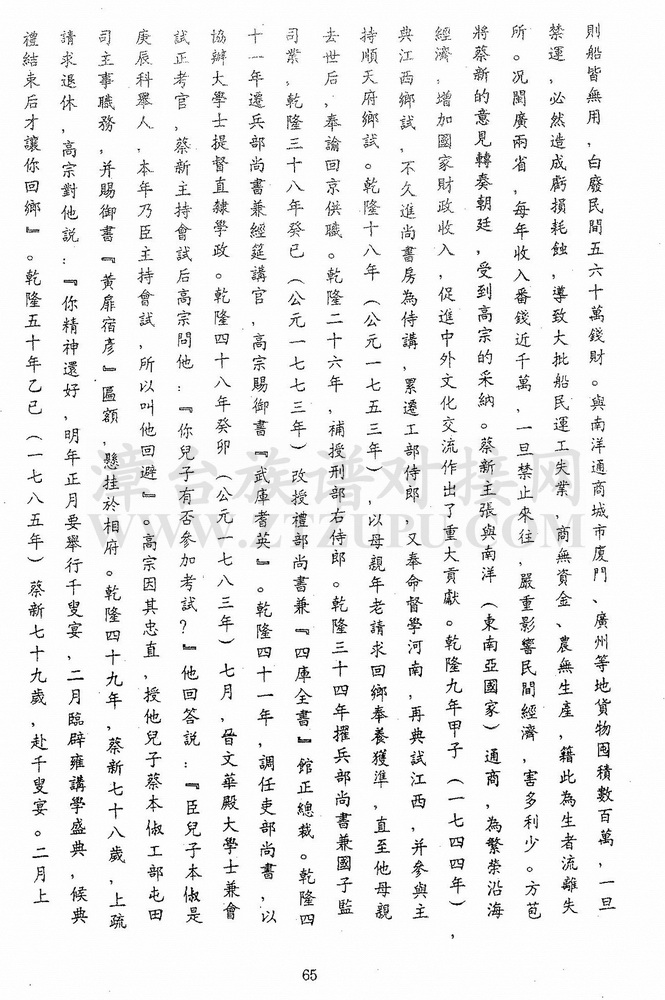 則船皆無用，白廢民間五六十萬錢財。與南洋通商城市廈門、廣州等地貨物囤積數百萬，一旦
禁運，必然造成虧損耗蝕，導致大批船民運工失業，商無資金、農無生產，藉此為生者流離失
所。况閩廣兩省，每年收入番錢近千萬，一旦禁止來往，嚴重影響民間經濟，害多利少。方苞
將蔡新的意見轉奏朝廷，受到高宗的采納。蔡新主張與南洋（東南亞國家）通商，為繁榮沿海
經濟，增加國家財政收入，促進中外文化交流作出了重大貢獻。乾隆九年甲子（一七四四年），
典江西鄉試，不久進尚書房為侍講，累遷工部侍郎，又奉命督學河南，再典試江西，并參與主
持順天府鄉試。乾隆十八年（公元一七五三年），以母親年老請求回鄉奉養獲準，直至他母親
去世后，奉諭回京供職。乾隆二十六年，補授刑部右侍郎。乾隆三十四年擢兵部尚書兼國子監
司業，乾隆三十八年癸巳（公元一七七三年）改授禮部尚書兼『四庫全書』館正總裁。乾隆四
十一年遷兵部尚書兼經筵講官，高宗賜御書『武庫耆英』。乾隆四十一年，調任吏部尚書，以
協辦大學士提督直隸學政。乾隆四十八年癸卯（公元一七八三年）七月，晉文華殿大學士兼會
試正考官，蔡新主持會試后高宗問他：『你兒子有否參加考試？』他回答說：『臣兒子本俶是
庚辰科舉人，本年乃臣主持會試，所以叫他回避』。高宗因其忠直，授他兒子蔡本俶工部屯田
司主事職務，并賜御書『黃扉宿彥』匾額，懸挂於相府。乾隆四十九年，蔡新七十八歲，上疏
請求退休，高宗對他說：『你精神還好，明年正月要舉行千叟宴，二月臨辟雍講學盛典，候典
禮結束后才讓你回鄉』。乾隆五十年乙巳（一七八五年）蔡新七十九歲，赴千叟宴。二月上
65
漳台族谱对接网
WWW.ZTZUPU.COM